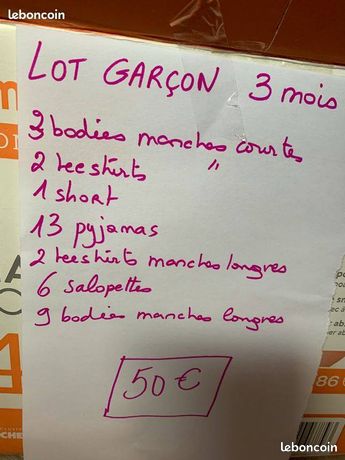 leboncoin
LOT GARÇON 3 mois
3 bodies manches courtes
2 teeshirts "
1 short
13 pyjamas
2 teeshirts manches longres
6 salopettes
9 bodies manches longres
50 €
leboncoin